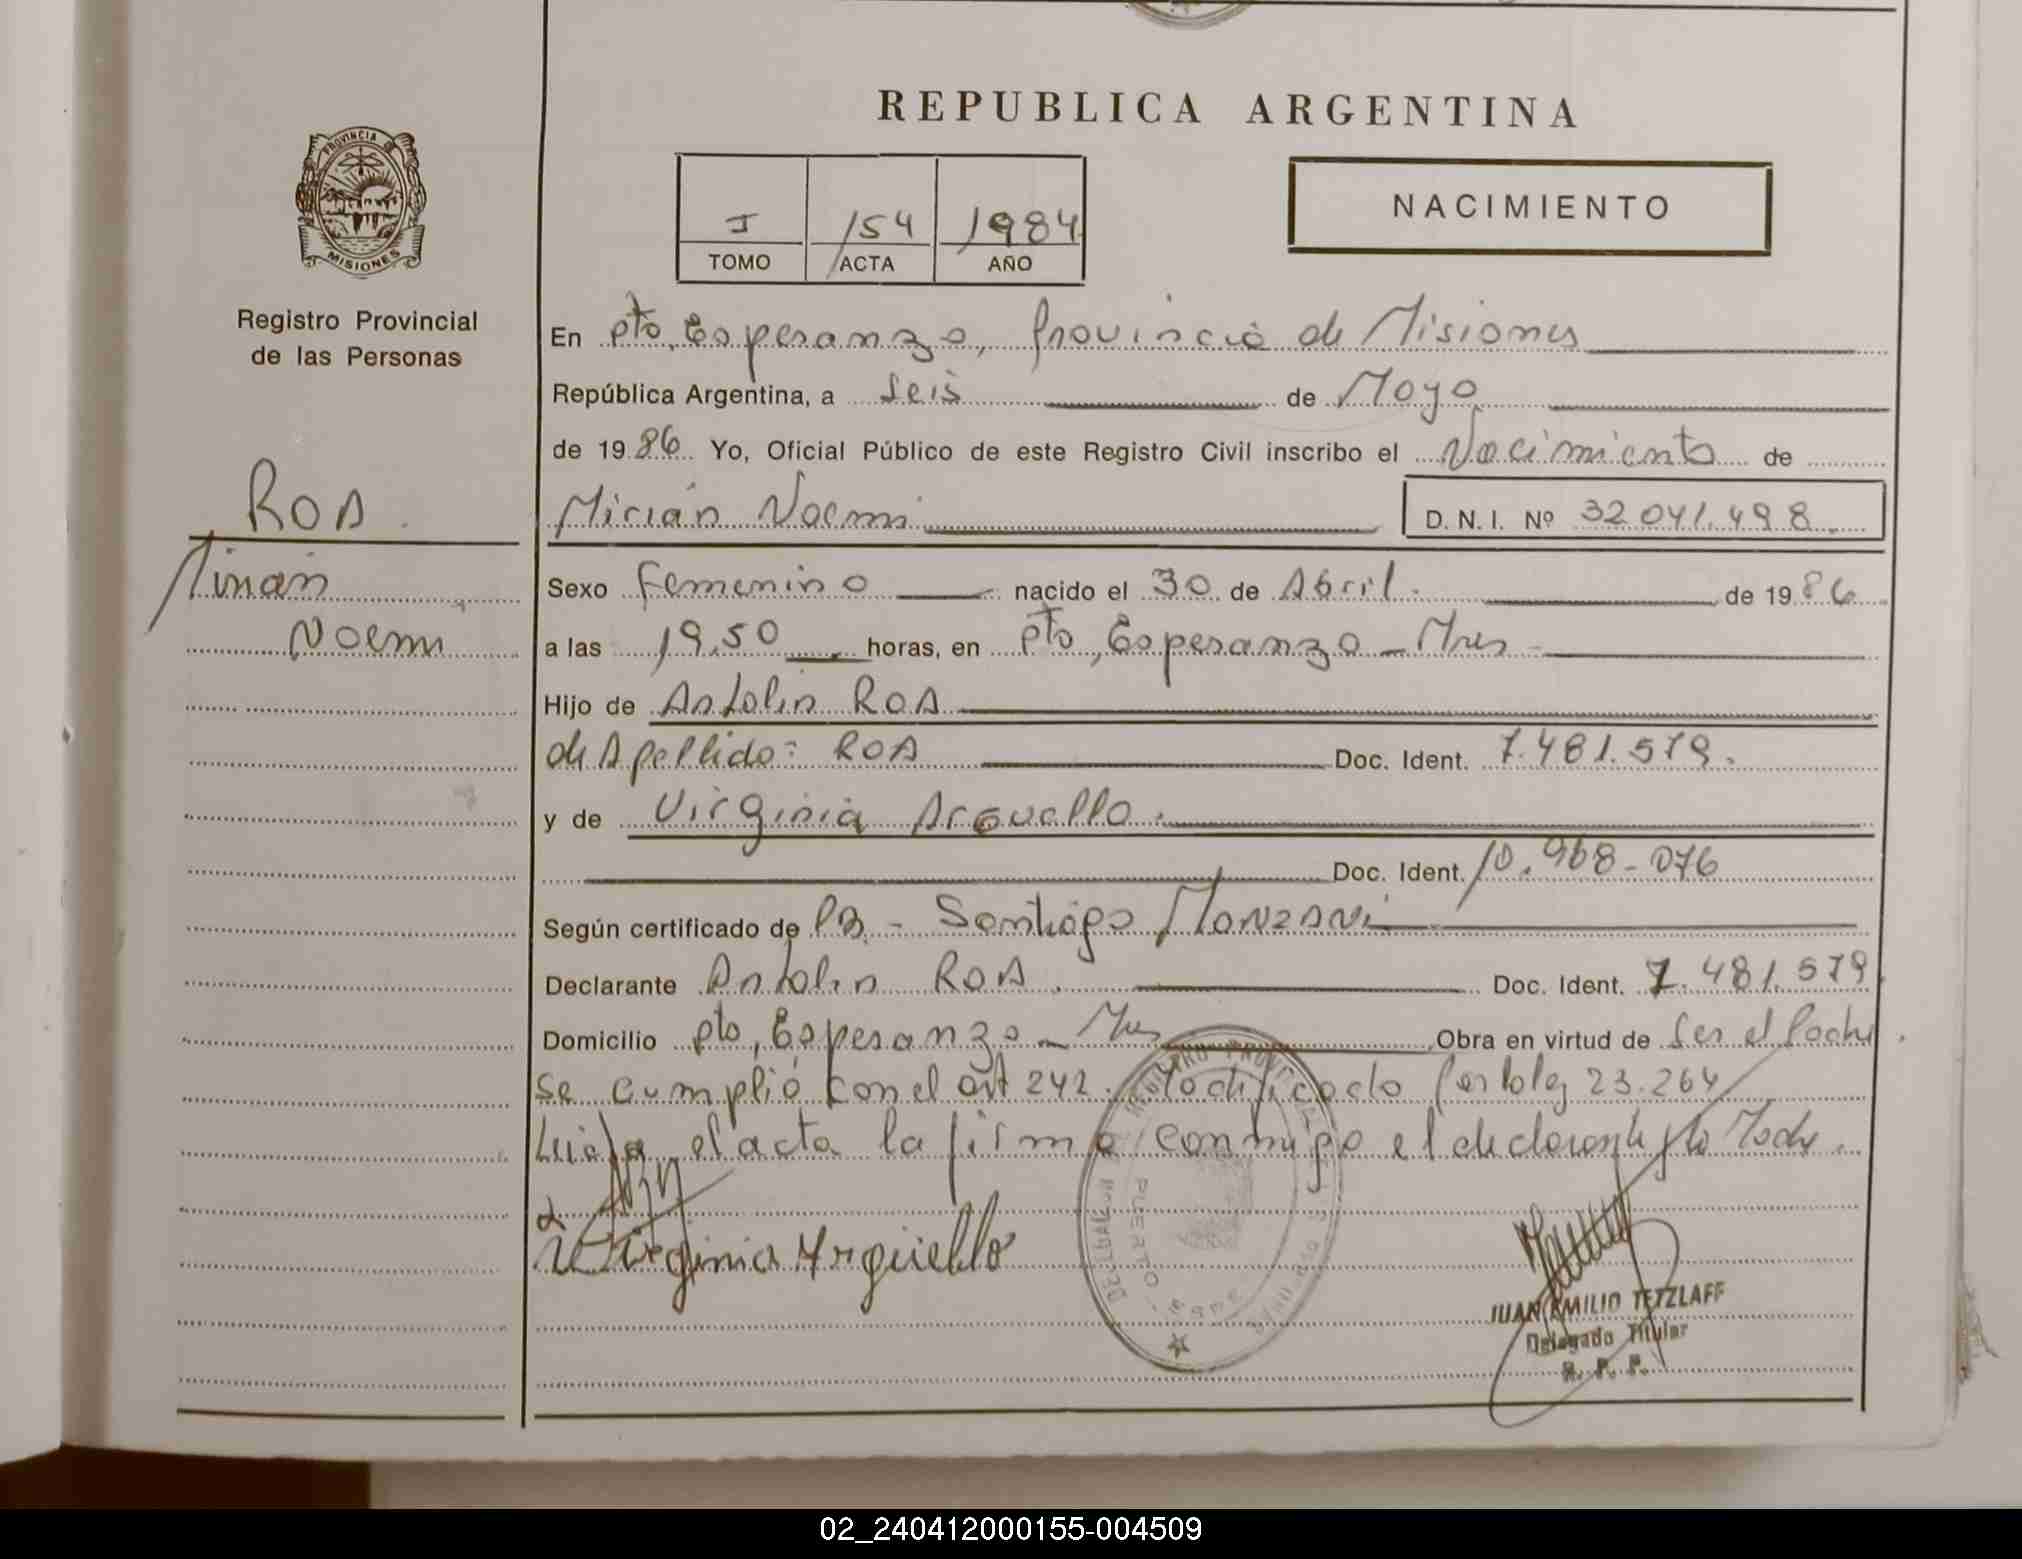 REPUBLICA ARGENTINA
PROVINCIA
MISIONES
Registro Provincial
de las Personas
I 154 1984
TOMO ACTA AÑO
NACIMIENTO
En Pto. Esperanza, Provincia de Misiones
República Argentina, a Seis de Mayo
de 1986 Yo, Oficial Público de este Registro Civil inscribo el Nacimiento de
Mirián Noemi D. N. I. Nº 32.041.498.
ROA
Mirián
Noemi
Sexo Femenino nacido el 30 de Abril. de 1986
a las 19,50 horas, en Pto, Esperanza - Mnes -
Hijo de Antolin ROA
de Apellido: ROA Doc. Ident. 7.481.579.
y de Virginia Arguello.
Doc. Ident. 10.968-076
Según certificado de PB. - Santiago Manzani
Declarante Antolin ROA. Doc. Ident. 7.481.579.
Domicilio Pto, Esperanza - Mnes Obra en virtud de Ser el Padre
Se cumplió con el art 242. Modificado Por la ley 23.264
Leida el acta la firma conmigo el declarante y la Madre.
Virginia Argüello
REGISTRO PROVINCIAL
PUERTO
JUAN EMILIO TETZLAFF
Delegado Titular
R. P. P.
02_240412000155-004509